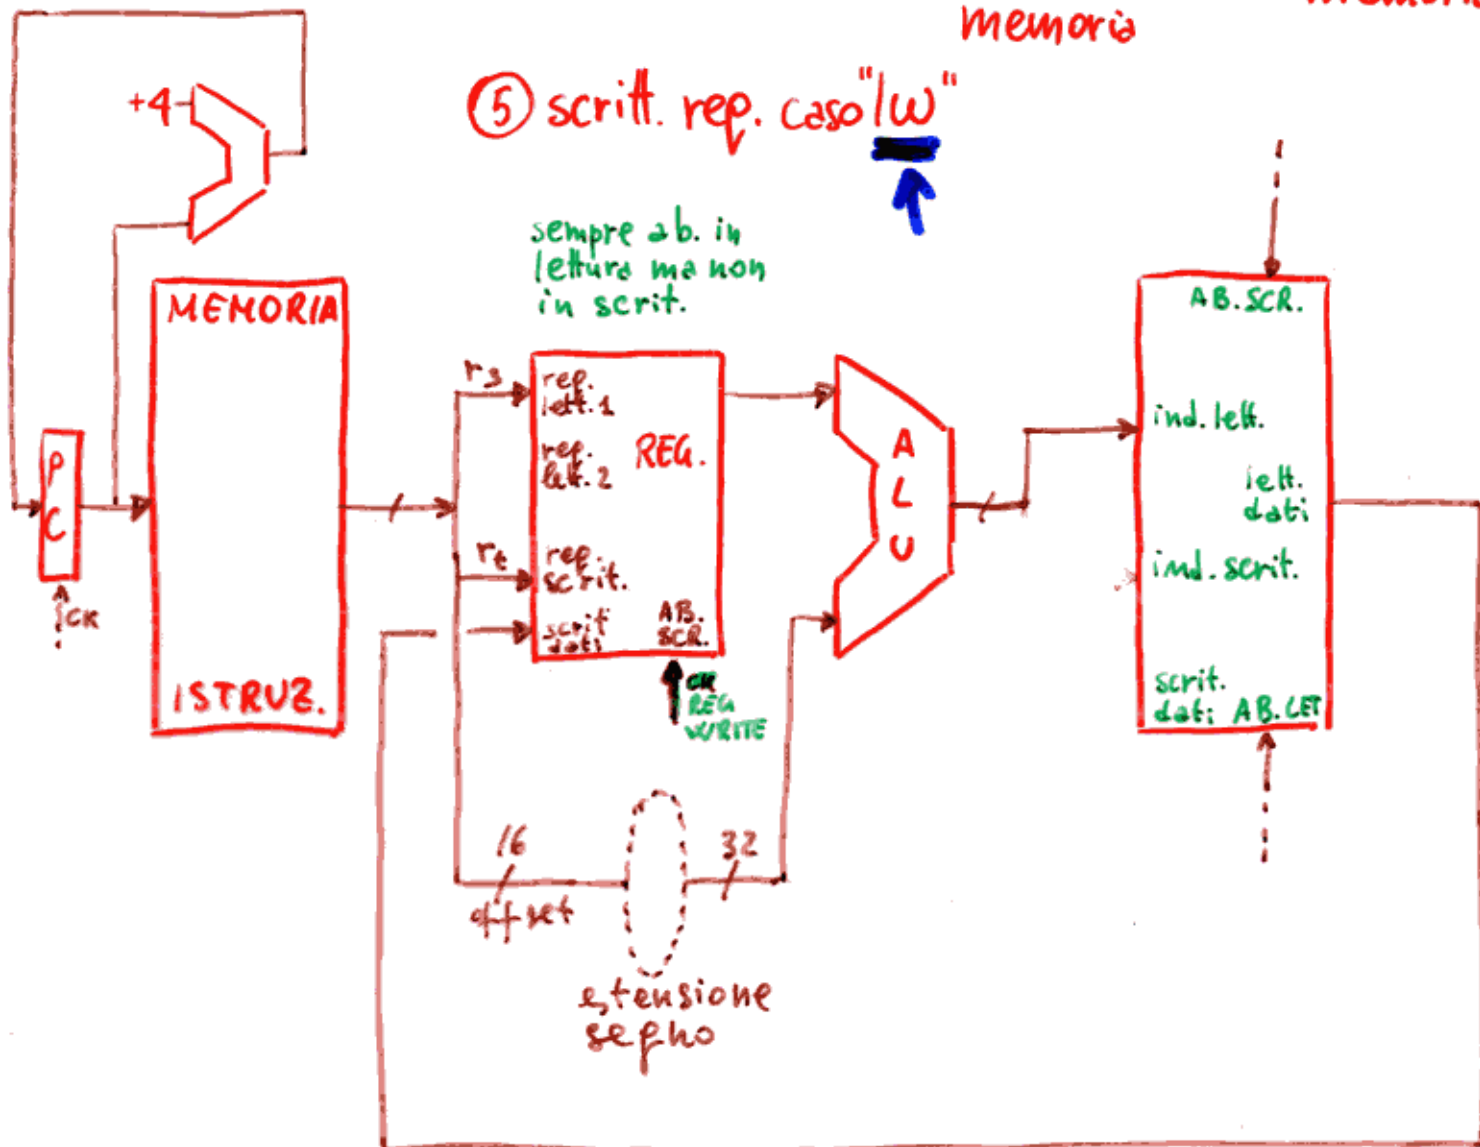 memoria
memoria
+4
⑤ scritt. reg. caso "lw"
sempre ab. in
lettura ma non
in scrit.
MEMORIA
ISTRUZ.
PC
CK
rs
reg.
lett. 1
reg.
lett. 2
REG.
rt
reg.
scrit.
scrit
dati
AB.
SCR.
CK
REG
WRITE
ALU
AB. SCR.
ind. lett.
lett.
dati
ind. scrit.
scrit.
dati AB. LET
16
offset
32
estensione
segno